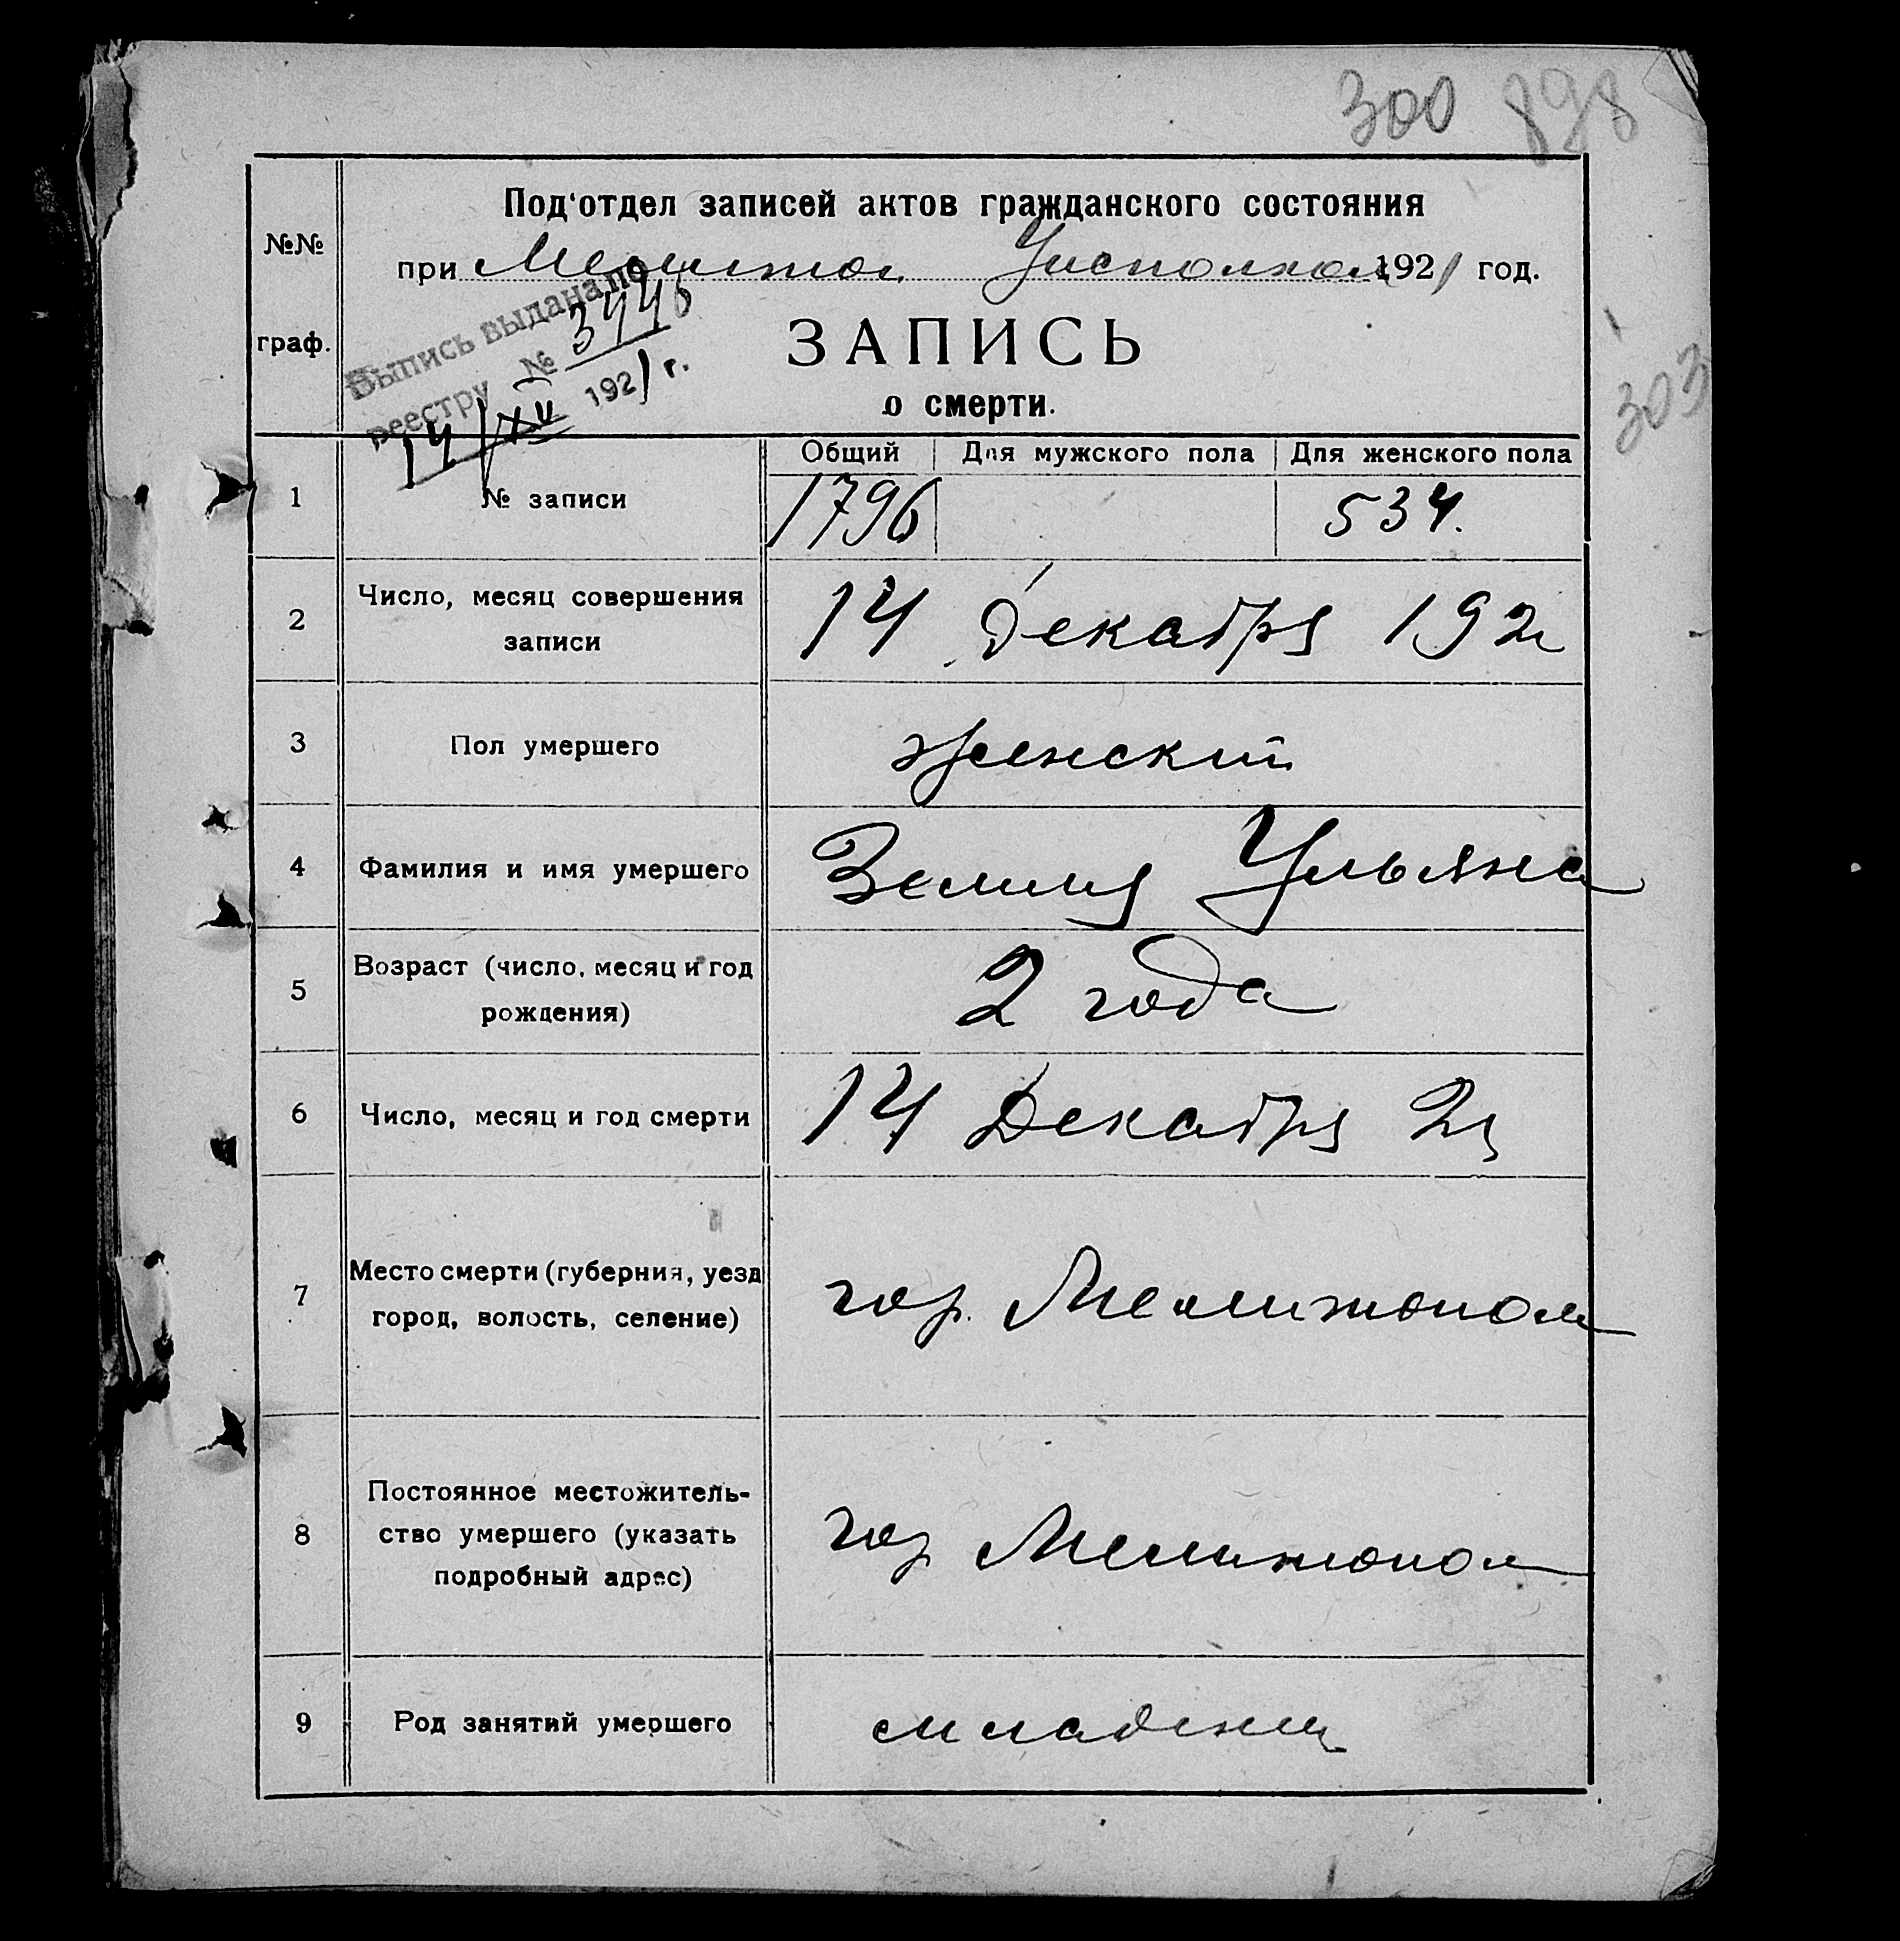 300 898
Под‘отдел записей актов гражданского состояния
№№
при Мелитоп. Уисполкоме 1921 год.
Выпись выдана по
реестру № 3946
14/XII 1921 г.
граф.
ЗАПИСЬ
о смерти.
303
Общий Для мужского пола Для женского пола
1 № записи 1796 534.
2 Число, месяц совершения
записи
14 декабря 1921
3 Пол умершего женский
4 Фамилия и имя умершего Ульяна
5 Возраст (число, месяц и год
рождения)
2 года
6 Число, месяц и год смерти 14 Декабря 21
7 Место смерти (губерния, уезд
город, волость, селение)
гор. Мелитополь
8 Постоянное местожитель-
ство умершего (указать
подробный адрес)
гор Мелитополь
9 Род занятий умершего младенец